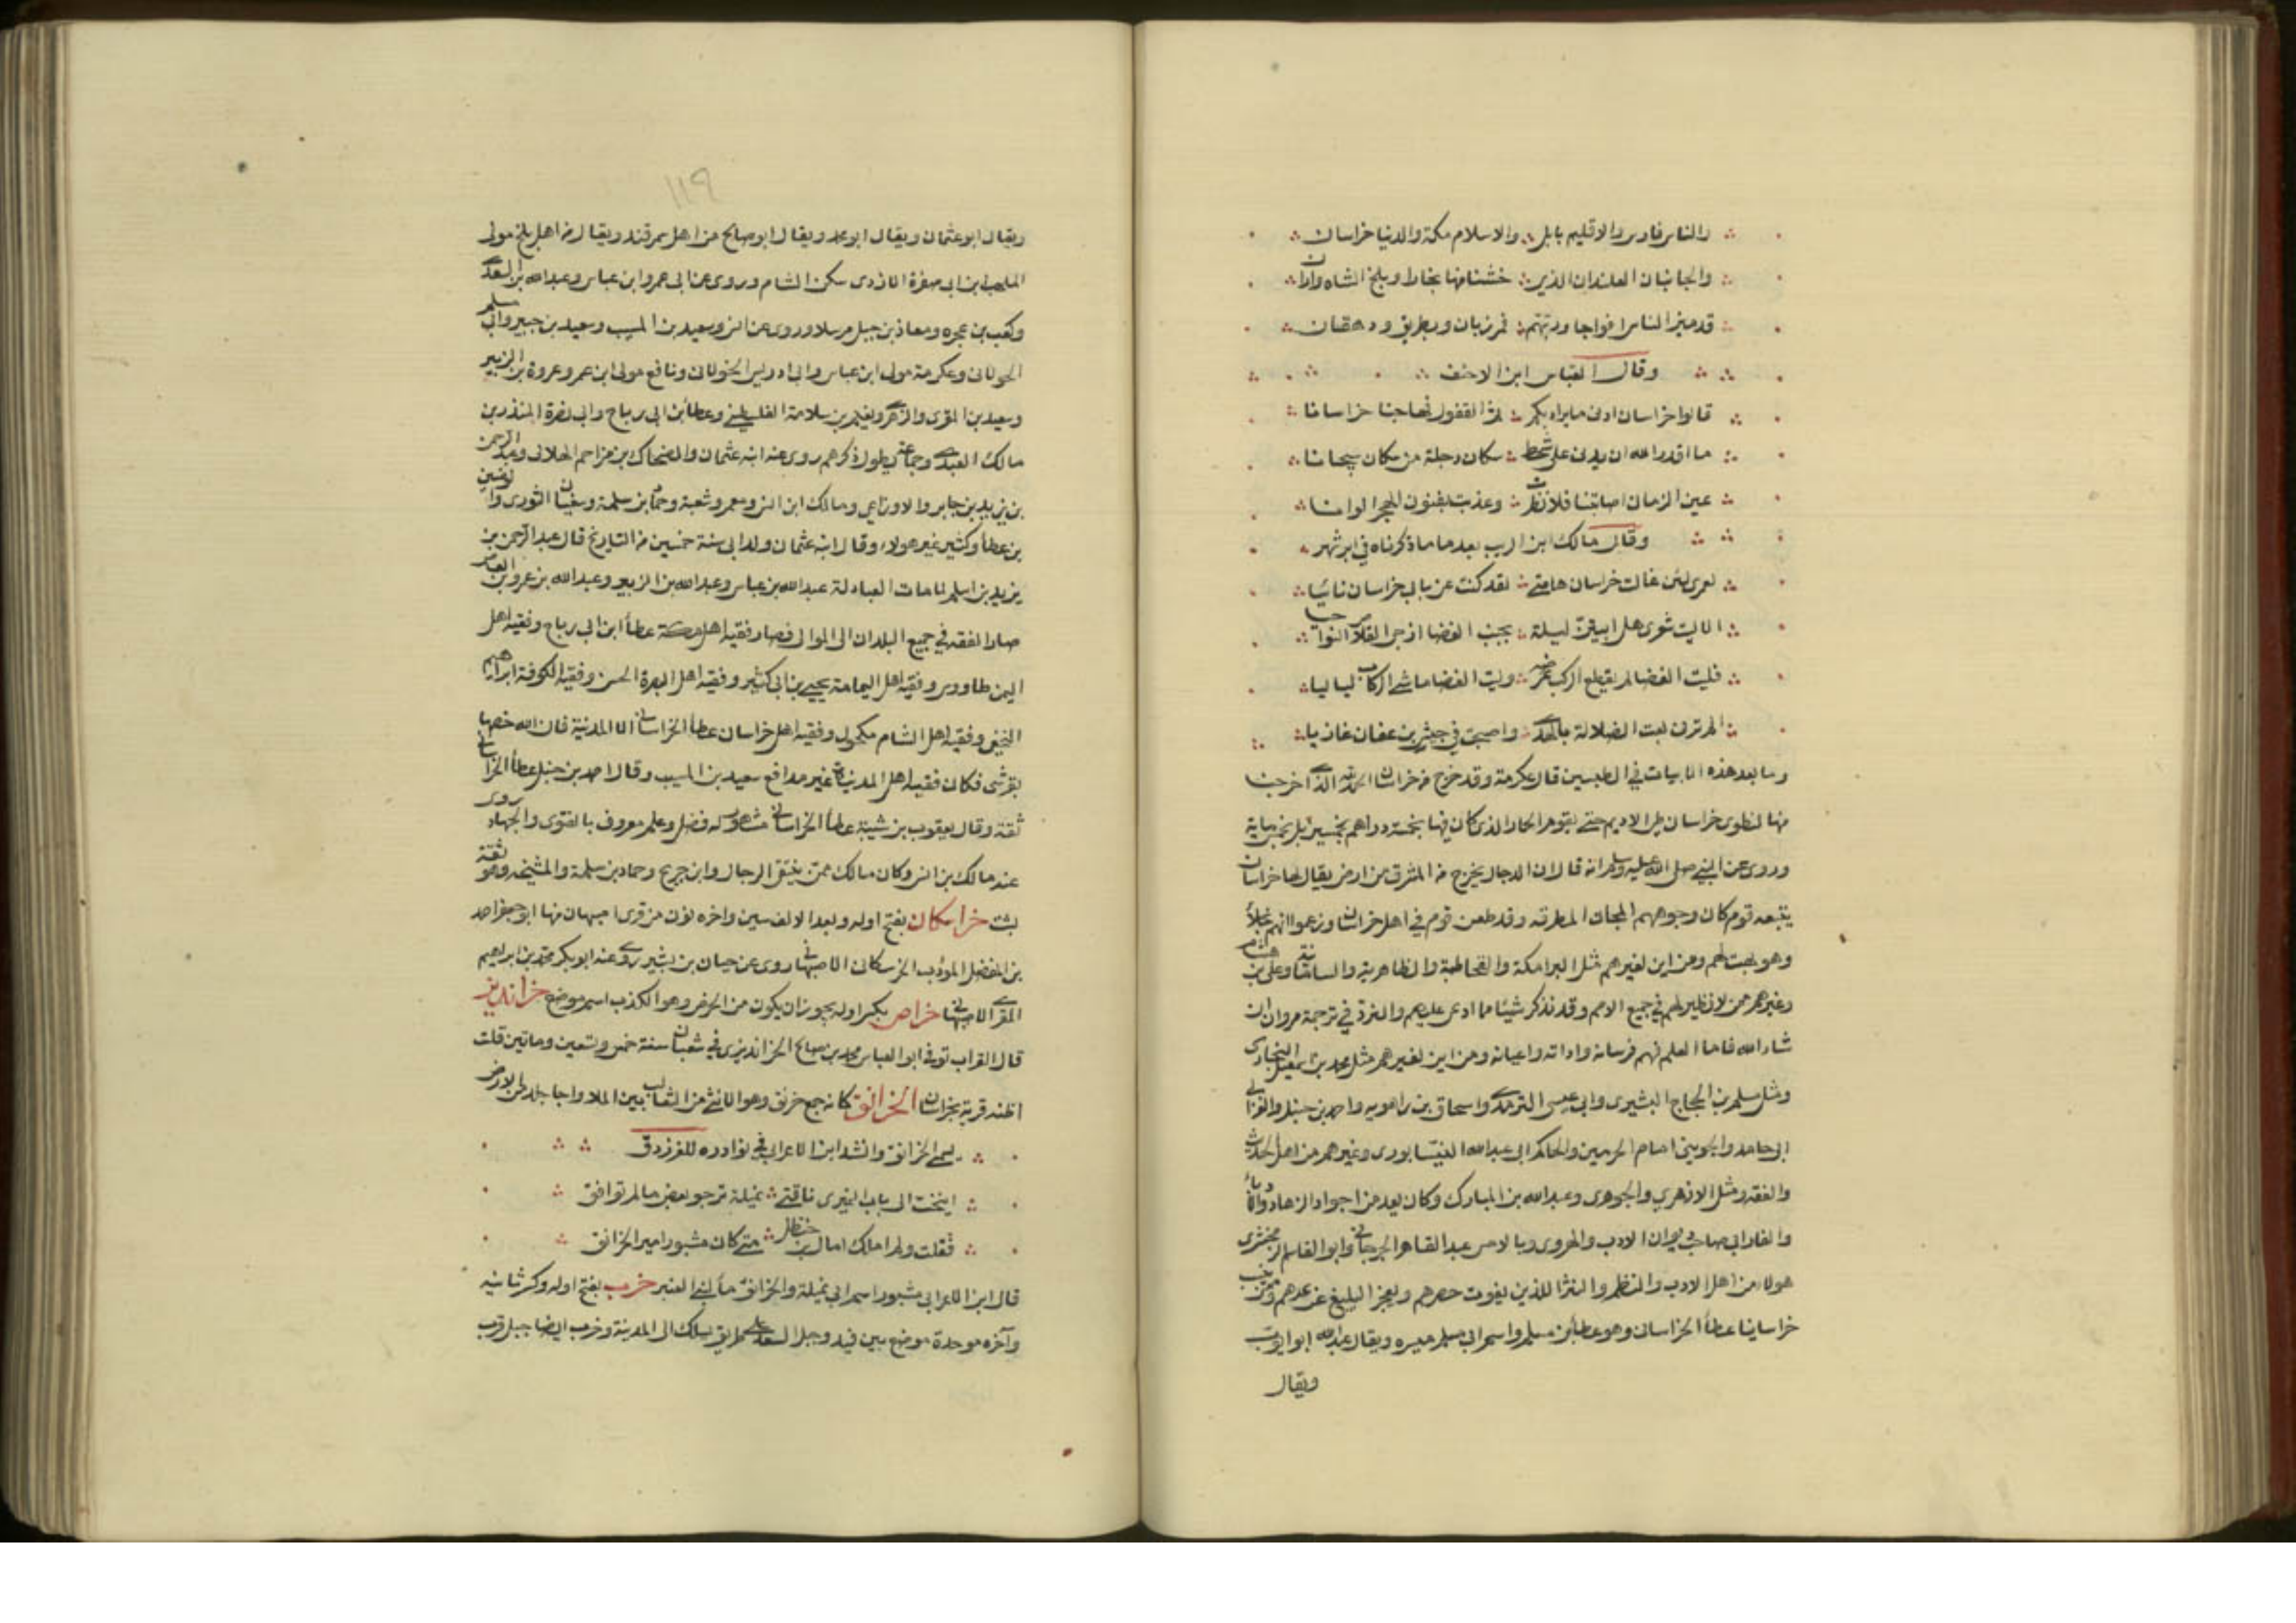 والناس فارس والاقليم بابل والاسلام مكة والدنيا خراسان
والجانبان العلندان الذين خشنا منها بخارا وبلخ الشاه واران
قد ميز الناس افواجا ورتبهم فمرزبان وبطريق ودهقان
وقال العباس ابن الاحنف
قالوا خراسان ادنى ما يراد بكم ثم القفول فها جئنا خراسانا
ما اقدر الله ان يدنى على شحط سكان دجلة من سكان سيحانا
عين الزمان اصابتنا فلا نظرت وعذبت بفنون الهجر الوانا
وقال مالك ابن الريب بعد ما ما ذكرناه في ابرشهر
لعمرى لئن غالت خراسان هامتى لقد كنت عن بابى خراسان نائيا
الا ليت شعرى هل ابيتن ليلة بجنب الغضا ازجى القلاص النواجيا
فليت الغضا لم يقطع الركب عرضه وليت الغضا ماشى الركاب لياليا
الم ترنى بعت الضلالة بالهدى واصبحت في جيش بن عفان غازيا
وما بعد هذه الابيات في الطبسين قال عكرمة وقد خرج من خراسان الحمد لله الذى اخرجنا
منها لنطوى خراسان طى الاديم حتى يقوم الحمار الذى كان فيها بخمسة دراهم بخمسين بل بخمس ماية
وروى عن النبي صلى الله عليه وسلم انه قال ان الدجال يخرج من المشرق من ارض يقال لها خراسان
يتبعه قوم كان وجوههم المجان المطرقة وقد طعن قوم في اهل خراسان وزعموا انهم بخلاء
وهو بهت لهم ومن اين لغيرهم مثل البرامكة والقحاطبة والطاهرية والسامانية وعلى بن هشام
وغيرهم ممن لا نظير لهم في جميع الامم وقد نذكر شيئا مما ادعى عليهم والرد في ترجمة مرو ان
شاء الله فاما العلم فهم فرسانه واداته واعيانه ومن اين لغيرهم مثل محمد بن اسمعيل البخارى
ومثل مسلم بن الحجاج القشيرى وابى عيسى الترمذى واسحاق بن راهويه واحمد بن حنبل والغزالى
ابى حامد والجوينى امام الحرمين والحاكم ابى عبد الله النيسابورى وغيرهم من اهل الحديث
والفقه ومثل الازهرى والجوهرى وعبد الله بن المبارك وكان يعد من اجواد الزهاد والادباء
والفارابى صاحب ديوان الادب والهروى وبالامس عبد القاهر الجرجانى وابو القاسم الزمخشرى
هولاء من اهل الادب والنظم والنثر اللذين يفوت حصرهم ويعجز البليغ عن عدهم وممن ينسب
خراسانيا عطاء الخراسانى وهو عطاء بن مسلم واسم ابى مسلم ميسره ويقال عبد الله ابو ايوب
ويقال
١١٩
ويقال ابو عثمان ويقال ابو محمد ويقال ابو صالح من اهل سمرقند ويقال من اهل بلخ مولى
المهلب ابن ابى صفرة الازدى سكن الشام وروى عن ابى عمر وابن عباس وعبد الله بن السعدى
وكعب بن عجره ومعاذ بن جبل مرسلا وروى عن انس وسعيد بن المسيب وسعيد بن جبير وابى مسلم
الخولانى وعكرمة مولى ابن عباس وابى ادريس الخولانى ونافع مولى ابن عمر وعروة بن الزبير
وسعيد بن المقرى والزهرى ونعيم بن سلامة الفلسطينى وعطاء بن ابى رباح وابى نضرة المنذر بن
مالك العبدى وجماعة يطول ذكرهم روى عنه ابنه عثمان والضحاك بن مزاحم الهلالى وعبد الرحمن
بن يزيد بن جابر والاوزاعى ومالك ابن انس ومعمر وشعبة وحماد بن سلمة وسفيان الثورى والوضين
بن عطاء وكثير غير هولاء وقال ابنه عثمان ولد ابى سنة خمسين من التاريخ قال عبد الرحمن بن
يزيد بن اسلم لما مات العبادلة عبد الله بن عباس وعبد الله بن الزبير وعبد الله بن عمرو بن العاص
صار الفقه في جميع البلدان الى الموالى فصار فقيه اهل مكة عطاء ابن ابى رباح وفقيه اهل
اليمن طاووس وفقيه اهل اليمامة يحيى بن ابى كثير وفقيه اهل البصرة الحسن وفقيه الكوفة ابراهيم
النخعى وفقيه اهل الشام مكحول وفقيه اهل خراسان عطاء الخراسانى الا المدينة فان الله خصها
بقرشى فكان فقيه اهل المدينة غير مدافع سعيد بن المسيب وقال احمد بن حنبل عطاء الخراسانى
ثقة وقال يعقوب بن شيبة عطاء الخراسانى مشهور له فضل وعلم معروف بالفتوى والجهاد روى
عنه مالك بن انس وكان مالك ممن ينتقى الرجال وابن جريج وحماد بن سلمة والمشيخه وهو ثقة
ثبت خراسكان بفتح اوله وبعد الالف سين واخره نون من قرى اصبهان منها ابو جعفر احمد
بن المفضل المودب الخراسكانى الاصبهانى روى عن حيان بن بشير روى عنه ابو بكر محمد بن ابراهيم
المقرى الاصبهانى خراص بكسر اوله يجوز ان يكون من الخرص وهو الكذب اسم موضع خراندیز
قال القراب توفى ابو العباس محمد بن صالح الخراندیزى في شعبان سنة خمس وتسعين وماتين قلت
اظنه قرية بخراسان الخرانق كانه جمع خرنق وهو الانثى من الثعالب بين الملا واجا جلد من الارض
يسمى الخرانق وانشد ابن الاعرابى في نوادره للفرزدق
انيخت الى باب النميرى ناقتى نميلة ترجو بعض ما لم توافق
فقلت ولم املك امال بن حنظل متى كان مشبور امير الخرانق
قال ابن الاعرابى مشبور اسم ابى نميلة والخرانق ماء لبنى العنبر خرب بفتح اوله وكسر ثانيه
وآخره موحدة موضع بين فيد وجبل السعد على طريق يسلك الى المدينة وخرب ايضا جبل قرب